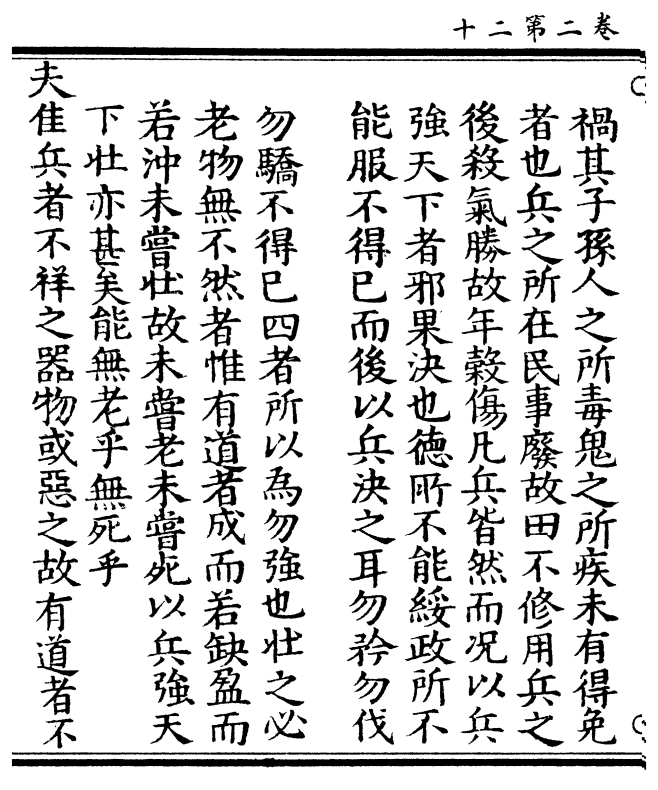 卷二第二十
禍其子孫人之所毒鬼之所疾未有得免
者也兵之所在民事廢故田不修用兵之
後殺氣勝故年穀傷凡兵皆然而况以兵
強天下者邪果決也德所不能綏政所不
能服不得已而後以兵決之耳勿矜勿伐
勿驕不得已四者所以為勿強也壯之必
老物無不然者惟有道者成而若缺盈而
若沖未嘗壯故未嘗老未嘗死以兵強天
下壯亦甚矣能無老乎無死乎
夫佳兵者不祥之器物或惡之故有道者不